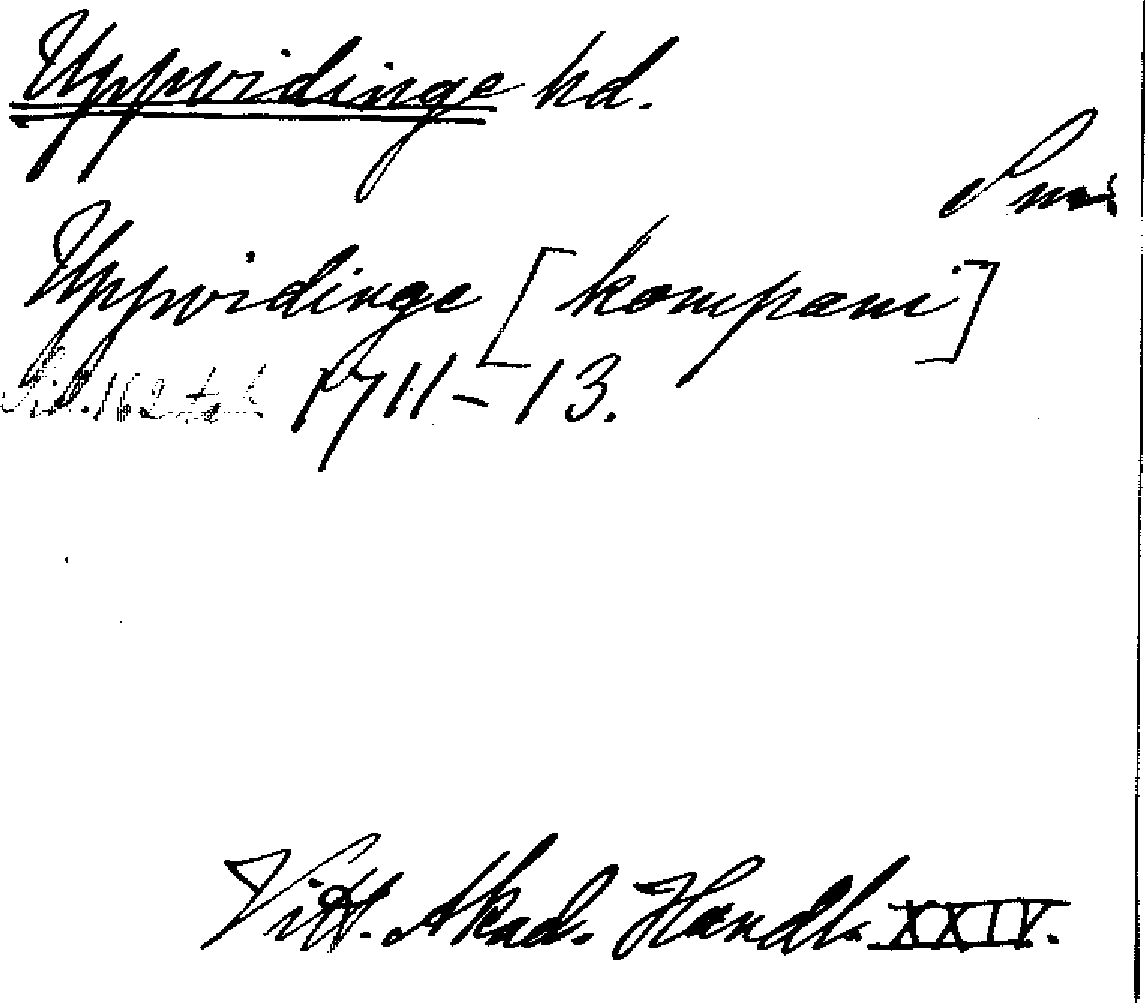 Uppvidinge hd.
Sm.
Uppvidinge [kompani]
1711-13.
Vitt. Akad. Handl. XXIV.